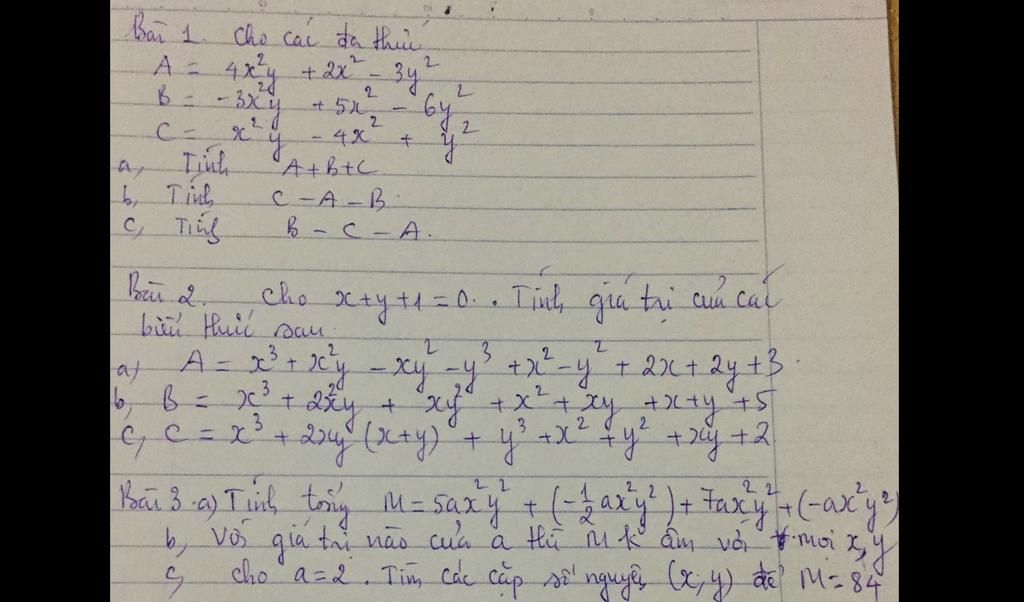 Bài 1. Cho các đa thức
A = 4x²y + 2x² - 3y²
B = -3x²y + 5x² - 6y²
C = x²y - 4x² + y²
a, Tính A+B+C
b, Tính C - A - B.
c, Tính B - C - A.
Bài 2. Cho x+y+1=0. Tính giá trị của các
biểu thức sau.
a) A = x³ + x²y - xy² - y³ + x² - y² + 2x + 2y + 3.
b, B = x³ + 2x²y + xy² + x² + xy + x + y + 5
c, C = x³ + 2xy (x+y) + y³ + x² + y² + xy + 2
Bài 3 a) Tính tổng M = 5ax²y² + (-1/2 ax²y²) + 7ax²y² + (-ax²y²)
b, Với giá trị nào của a thì M k âm với mọi x, y
c, cho a=2. Tìm các cặp số nguyên (x; y) để M = 84